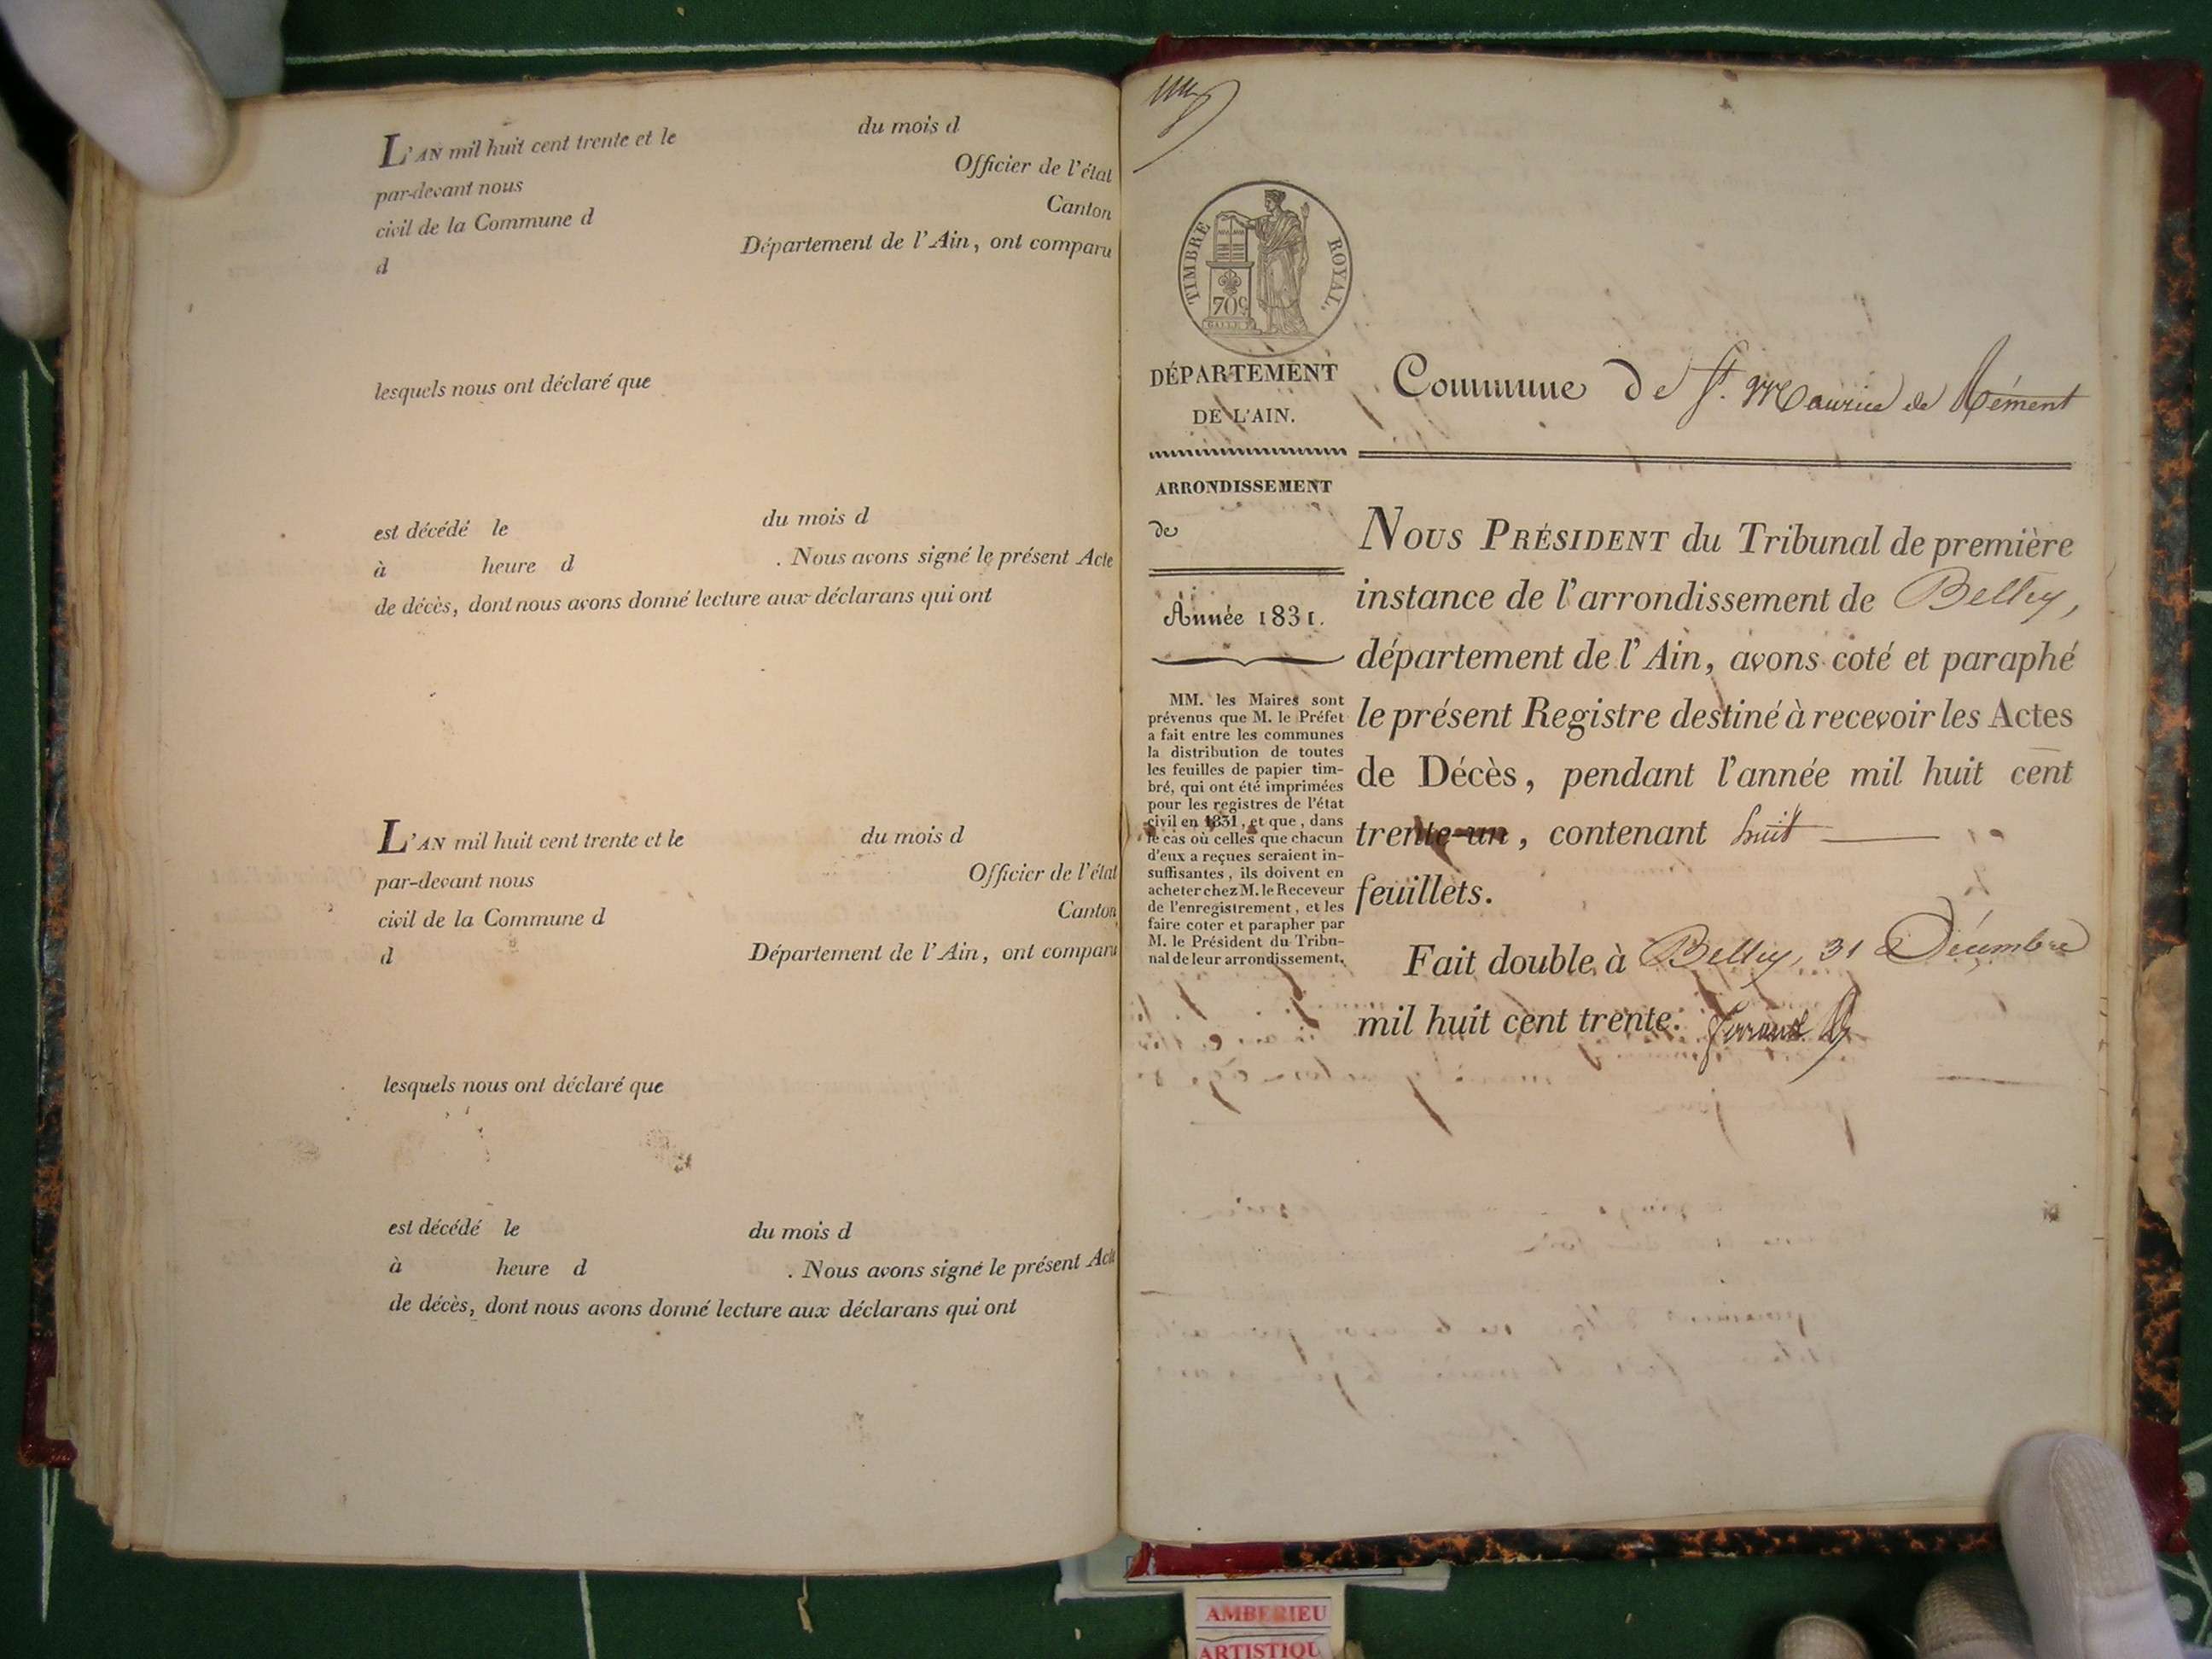 L'AN mil huit cent trente et le du mois d
par-devant nous Officier de l'état
civil de la Commune d Canton
d Département de l'Ain, ont comparu
lesquels nous ont déclaré que
est décédé le du mois d
à heure d . Nous avons signé le présent Acte
de décès, dont nous avons donné lecture aux déclarans qui ont
L'AN mil huit cent trente et le du mois d
par-devant nous Officier de l'état
civil de la Commune d Canton
d Département de l'Ain, ont comparu
lesquels nous ont déclaré que
est décédé le du mois d
à heure d . Nous avons signé le présent Acte
de décès, dont nous avons donné lecture aux déclarans qui ont
TIMBRE ROYAL.
70c
DÉPARTEMENT
DE L'AIN.
ARRONDISSEMENT
de
Année 1831.
MM. les Maires sont
prévenus que M. le Préfet
a fait entre les communes
la distribution de toutes
les feuilles de papier tim-
bré, qui ont été imprimées
pour les registres de l'état
civil en 1831, et que, dans
le cas où celles que chacun
d'eux a reçues seraient in-
suffisantes, ils doivent en
acheter chez M. le Receveur
de l'enregistrement, et les
faire coter et parapher par
M. le Président du Tribu-
nal de leur arrondissement.
Commune de St. Maurice de Rément
NOUS PRÉSIDENT du Tribunal de première
instance de l'arrondissement de Belley,
département de l'Ain, avons coté et paraphé
le présent Registre destiné à recevoir les Actes
de Décès, pendant l'année mil huit cent
trente-un, contenant huit
feuillets.
Fait double à Belley, 31 Décembre
mil huit cent trente.
AMBERIEU
ARTISTIQU